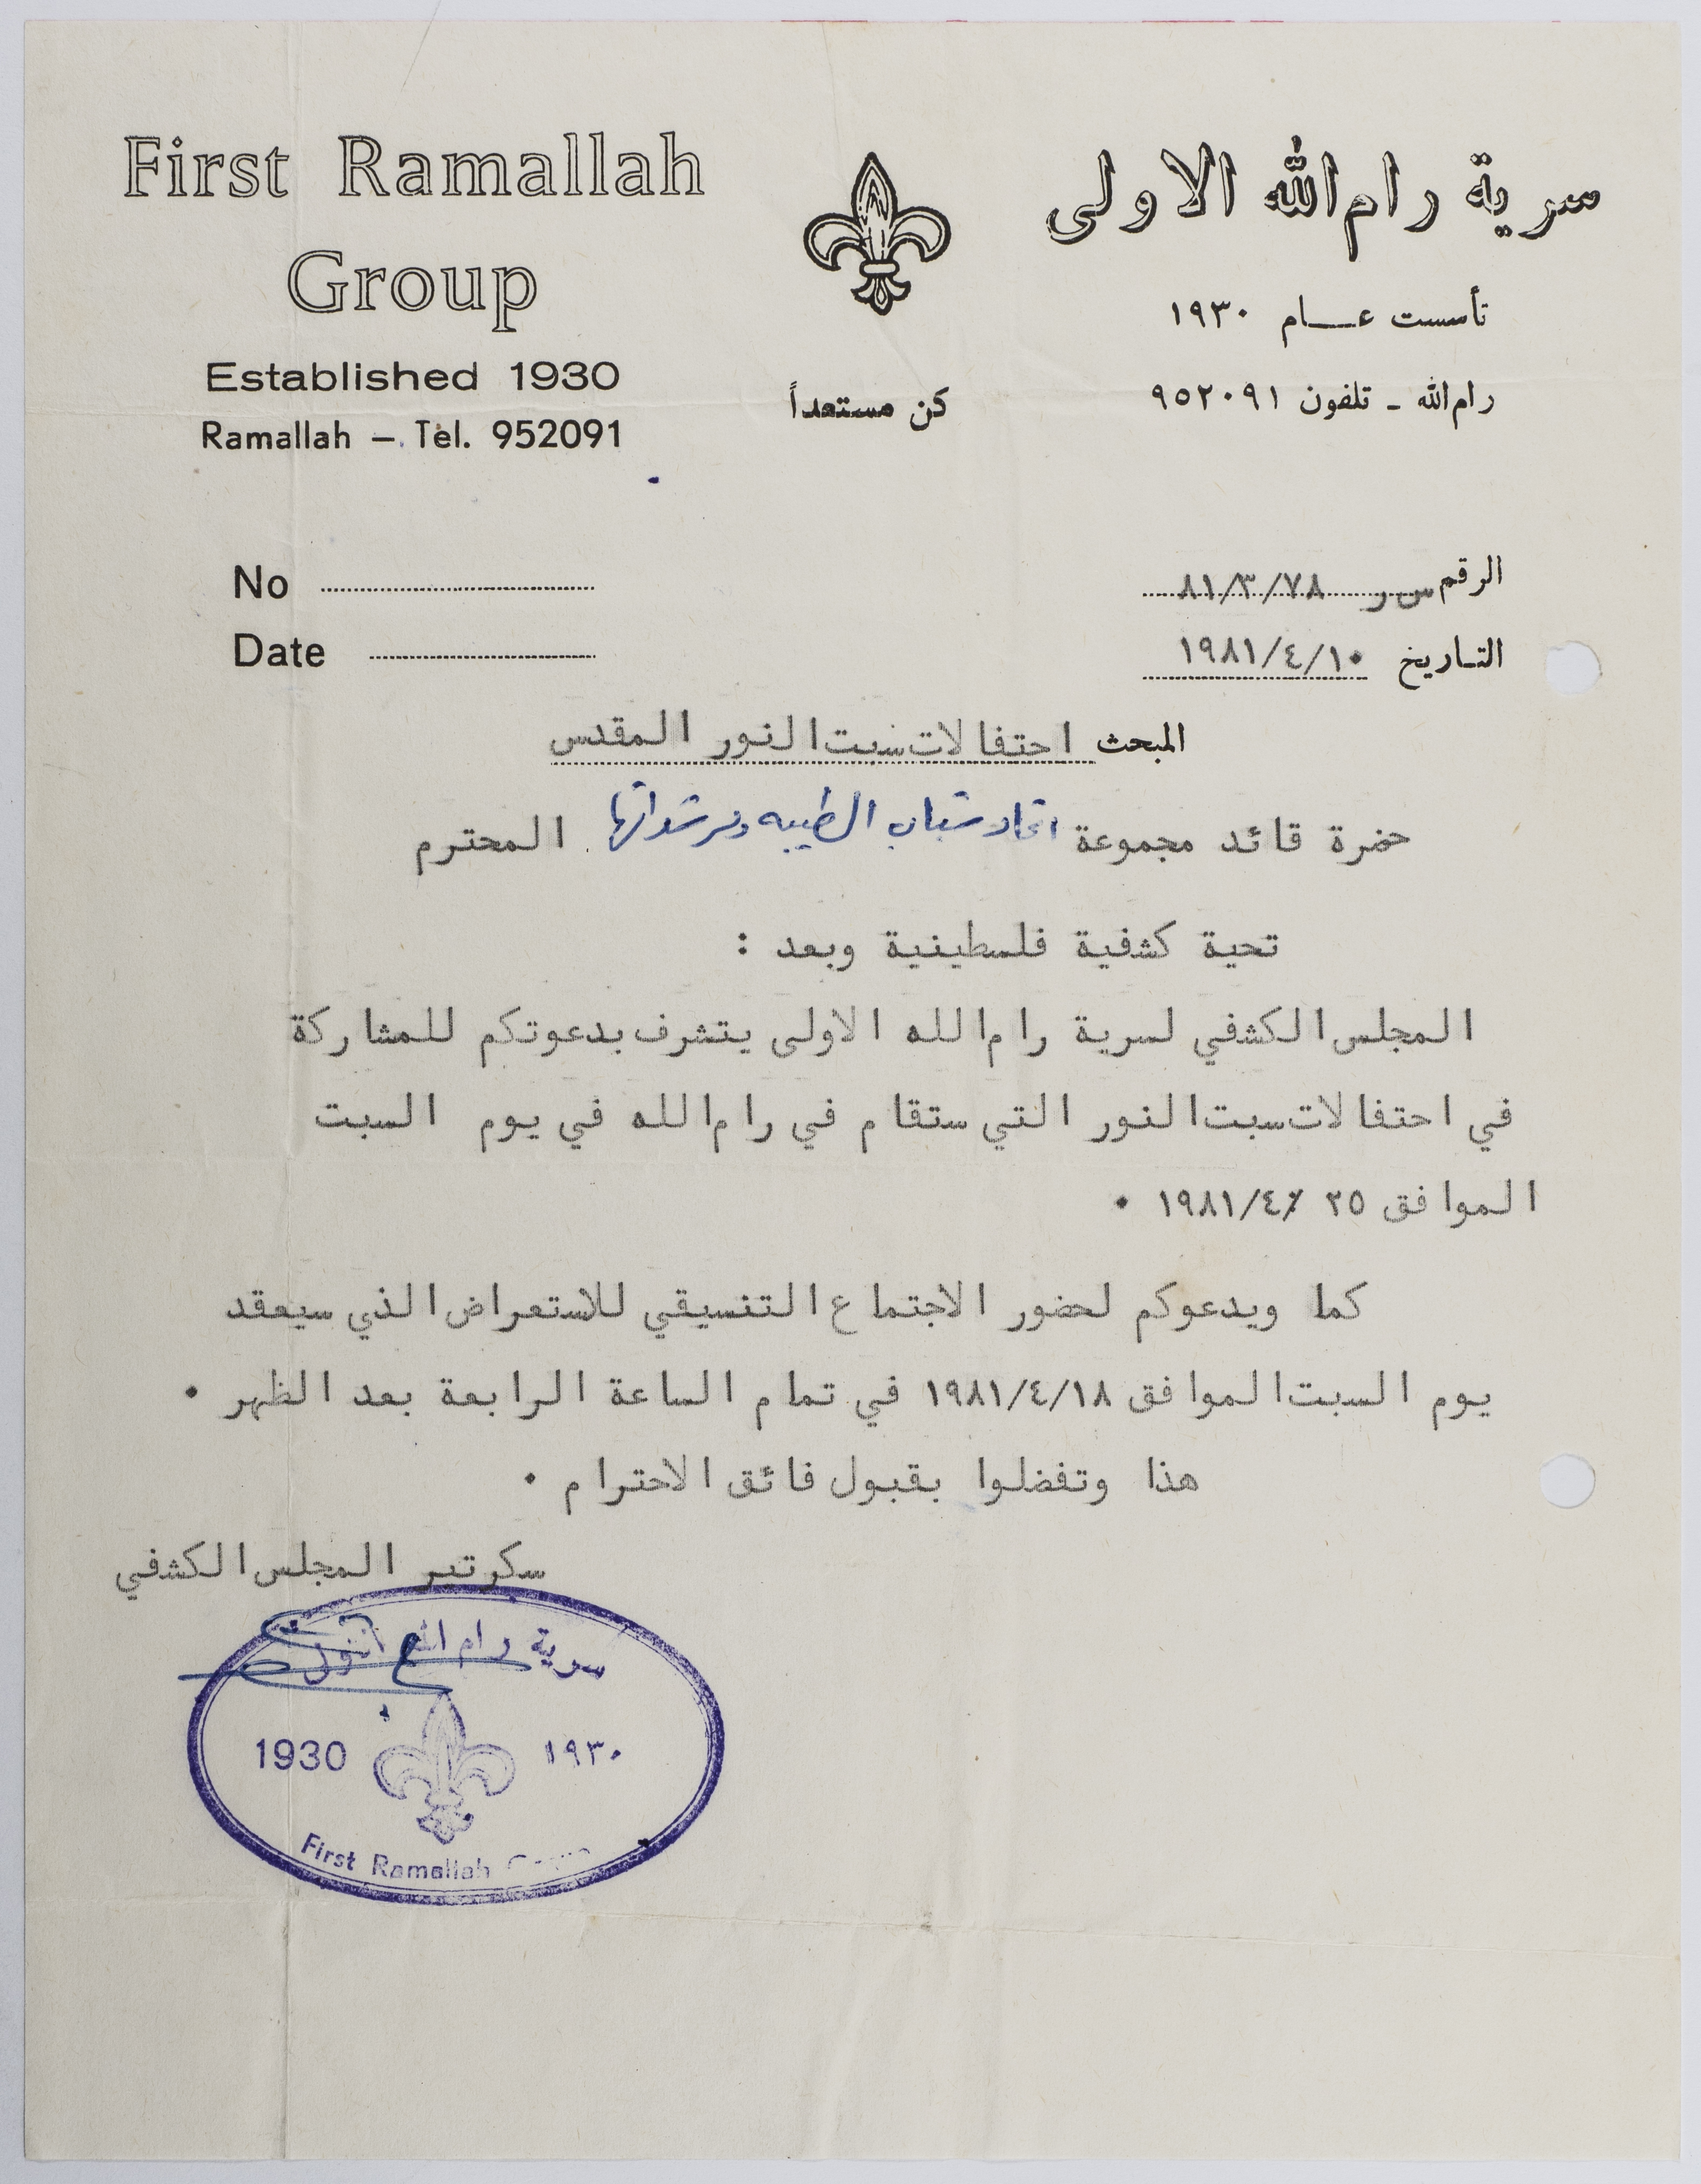 First Ramallah
Group
Established 1930
Ramallah – Tel. 952091
سرية رام الله الاولى
تأسست عـــام ١٩٣٠
رام الله ـ تلفون ٩٥٢٠٩١
كن مستعداً
No
Date
الرقم س ر ٨١/٣/٧٨
التاريخ ١٩٨١/٤/١٠
المبحث احتفالات سبت النور المقدس
حضرة قائد مجموعة اتحاد شباب الطيبه ومرشداتها المحترم
تحية كشفية فلسطينية وبعد :
المجلس الكشفي لسرية رام الله الاولى يتشرف بدعوتكم للمشاركة
في احتفالات سبت النور التي ستقام في رام الله في يوم السبت
الموافق ٢٥ /١٩٨١/٤ ٠
كما ويدعوكم لحضور الاجتماع التنسيقي للاستعراض الذي سيعقد
يوم السبت الموافق ١٩٨١/٤/١٨ في تمام الساعة الرابعة بعد الظهر ٠
هذا وتفضلوا بقبول فائق الاحترام ٠
سكرتير المجلس الكشفي
سرية رام الله
1930 ١٩٣٠
First Ramallah